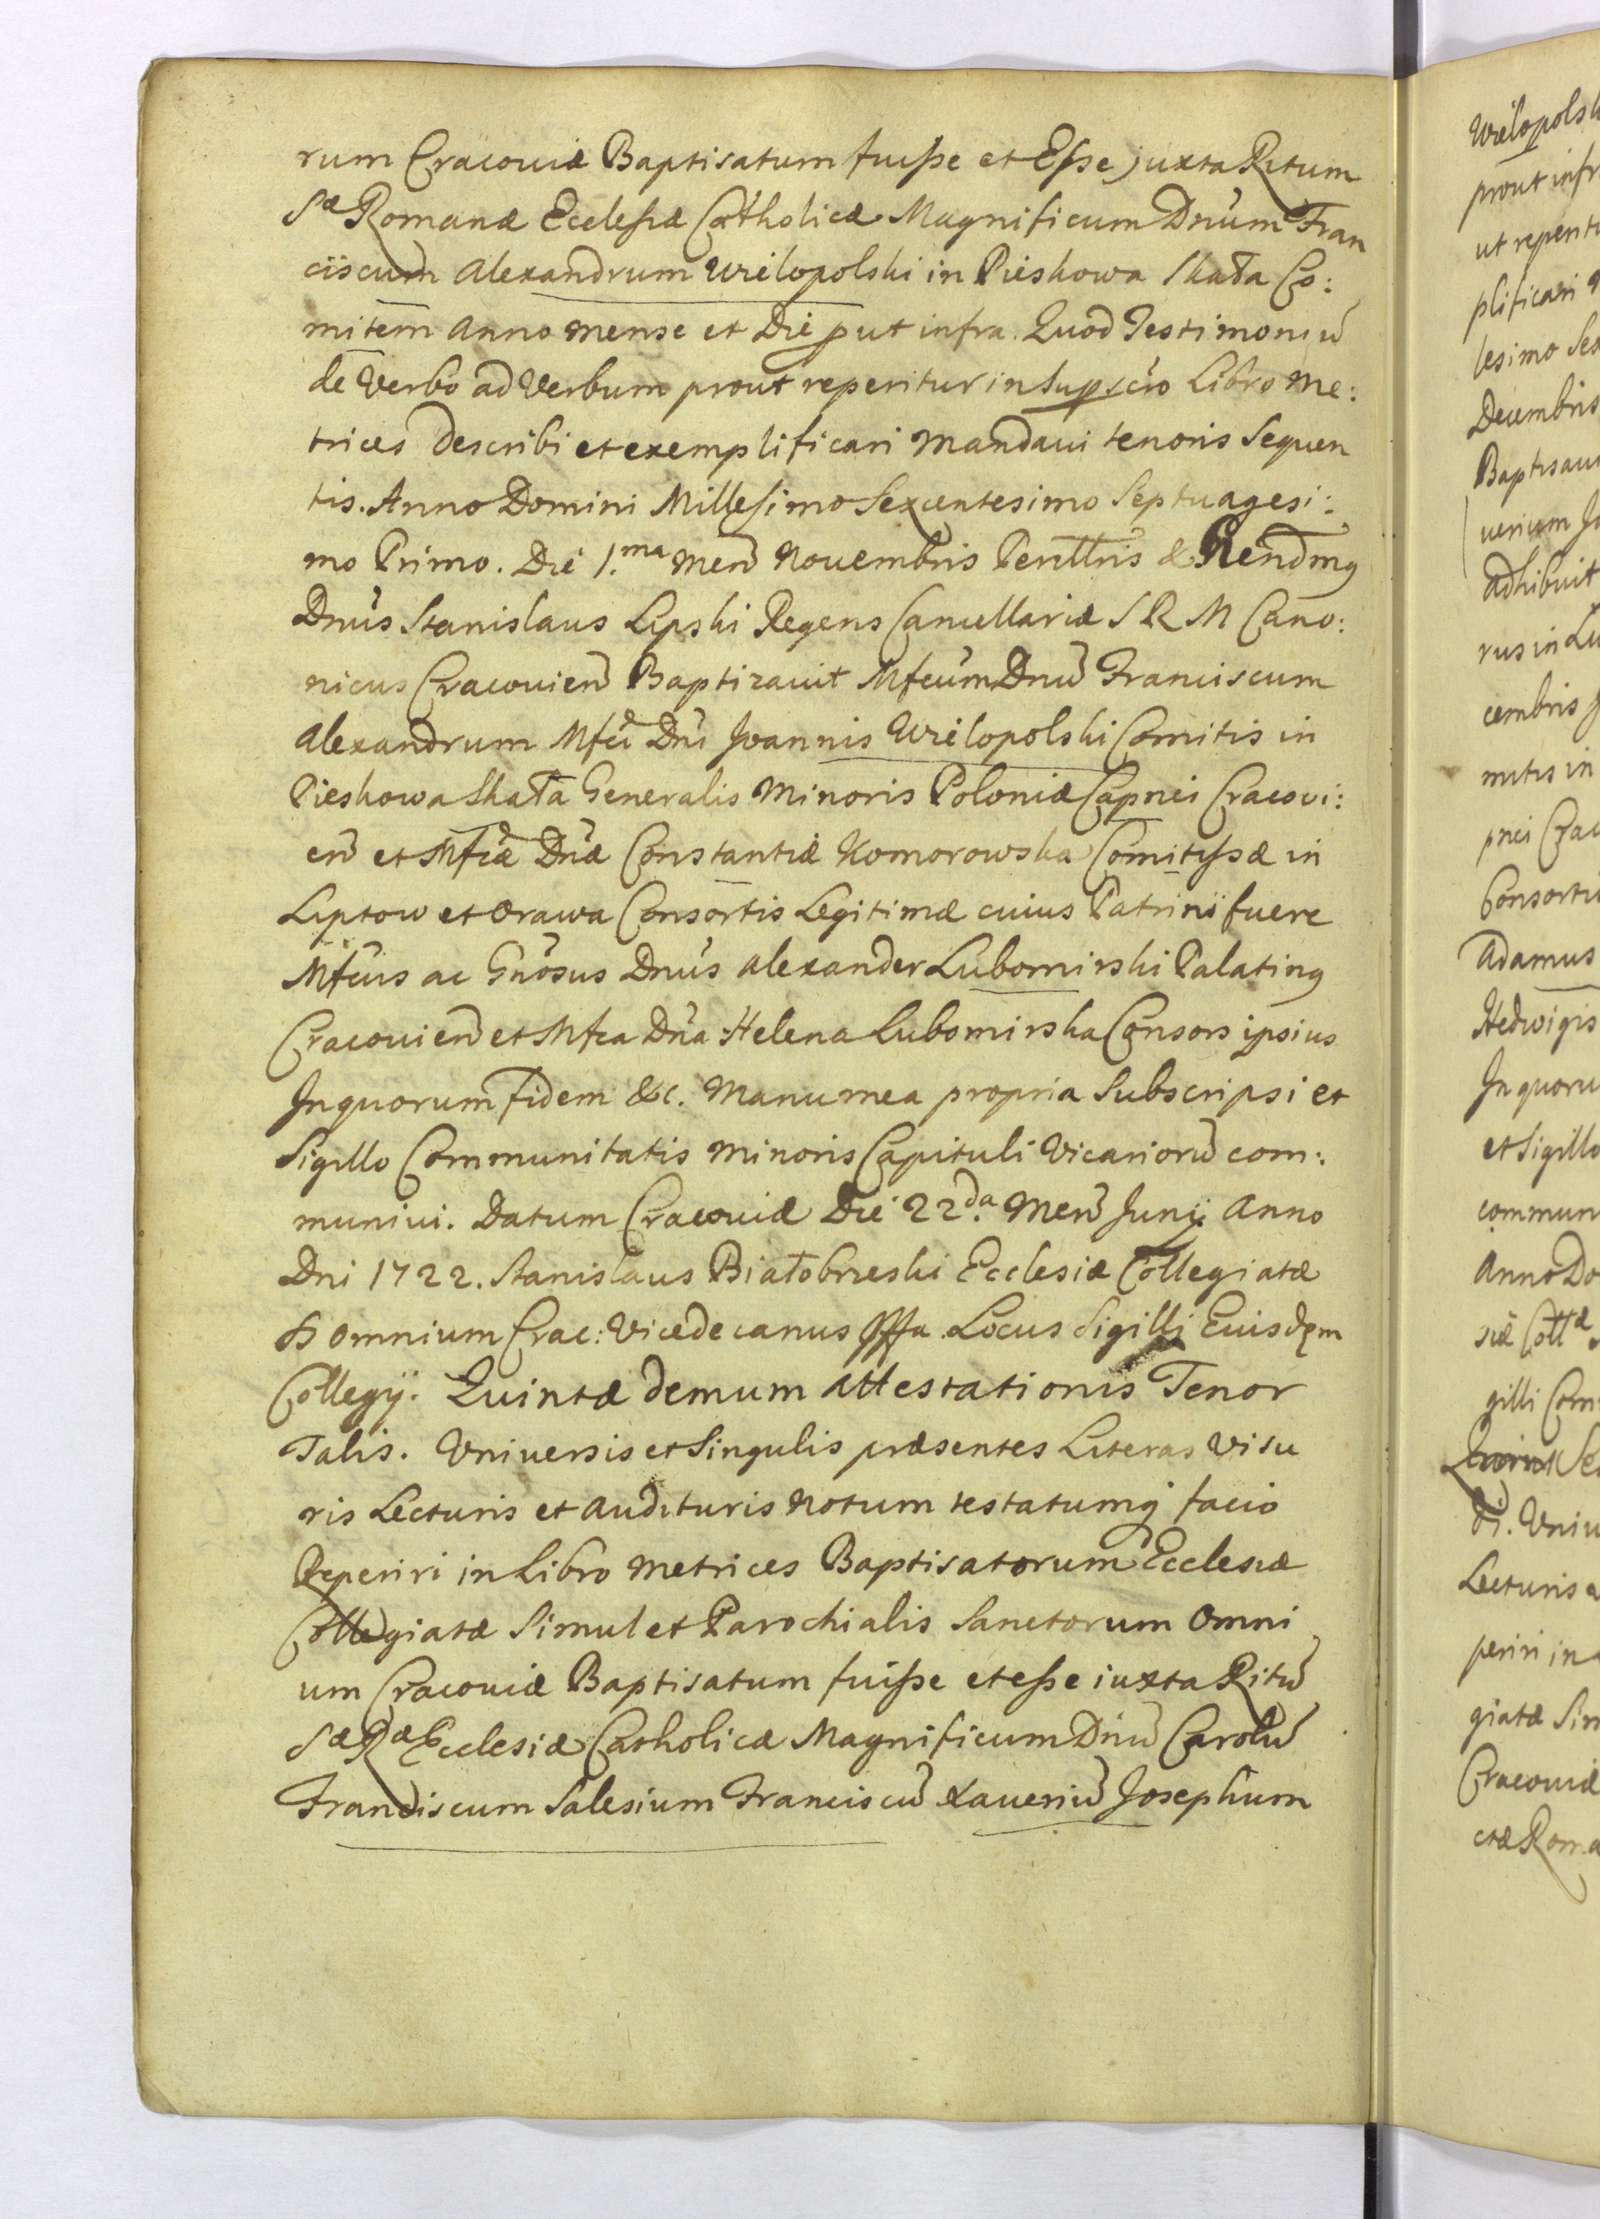 rum Cracoviæ Baptisatum fuisse et Esse juxta Ritum
Sæ Romanæ Ecclesiæ Catholicæ Magnificum Dnum Fran
ciscum Alexandrum Wielopolski in Pieskowa Skała Co:
mitem Anno mense et Die put infra. Quod Testimoniū
de Verbo ad Verbum prout reperitur in Suprscto Libro Me:
trices describi et exemplificari Mandavi tenoris Sequen
tis. Anno Domini Millesimo Sexcentesimo Septuagesi:
mo Primo. Die 1.ma Men̄ Novembris Perlltris & Rendmq
Dnus Stanislaus Lipski Regens Cancellariæ S R M Cano:
nicus Cracovien̄ Baptizavit Mfcum Dnū Franciscum
Alexandrum Mfci Dni Joannis Wielopolski Comitis in
Pieskowa Skała Generalis Minoris Poloniæ Capnei Cracovi:
en̄ et Mfcæ Dnæ Constantiæ Komorowska Comitissæ in
Liptow et Orawa Consortis Legitimæ cuius Patrini fuere
Mfcus ac Gnosus Dnus Alexander Lubomirski Palatinq
Cracovien̄ et Mfca Dna Helena Lubomirska Consors ipsius
In quorum fidem &c. Manu mea propria Subscripsi et
Sigillo Communitatis Minoris Capituli Vicariorū com:
munivi. Datum Cracoviæ Die 22da. Men̄ Junij Anno
Dni 1722. Stanislaus Białobrzeski Ecclesiæ Collegiatæ
SS Omnium Crac: Vicedecanus Locus Sigilli Eiusdem
Collegij. Quintæ demum Attestationis Tenor
Talis. Universis et Singulis præsentes Literas Visu
ris Lecturis et Audituris Notum testatumq facio
Reperiri in Libro Metrices Baptisatorum Ecclesiæ
Collegiatæ Simul et Parochialis Sanctorum Omni
um Cracoviæ Baptisatum fuisse et esse iuxta Ritū
Sæ Ræ Ecclesiæ Catholicæ Magnificum Dnū Carolū
Franciscum Salesium Franciscū Xaveriū Josephum
Wielopolsk
prout infr
ut reperit
plificari
lesimo Sex
Decembris
Baptisavi
adhibuit
rus in Lu
cembris
mitis in
pnei Crac
Consortis
Adamus
Hedwigis
In quoru
et Sigillo
commun
Anno Do
siæ Collæ
gilli Com
di. Univ
Lecturis a
periri in
giatæ Sim
Cracoviæ
ctæ Roma